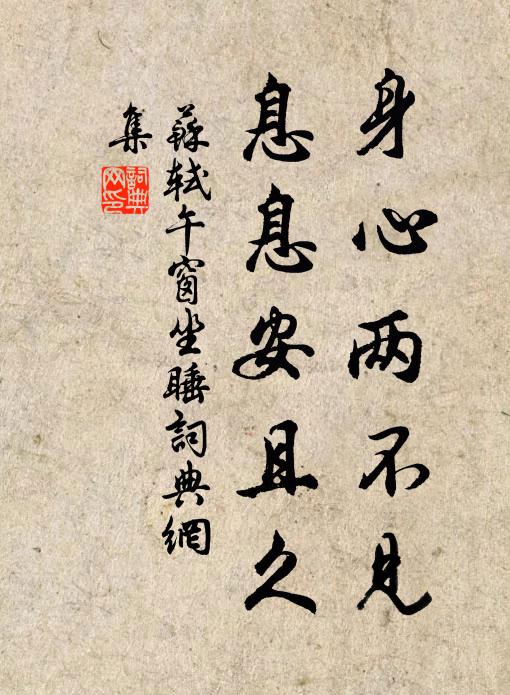 身心两不見
息息安且久
蘇軾午窗坐睡詞典網
集
詞典
网印